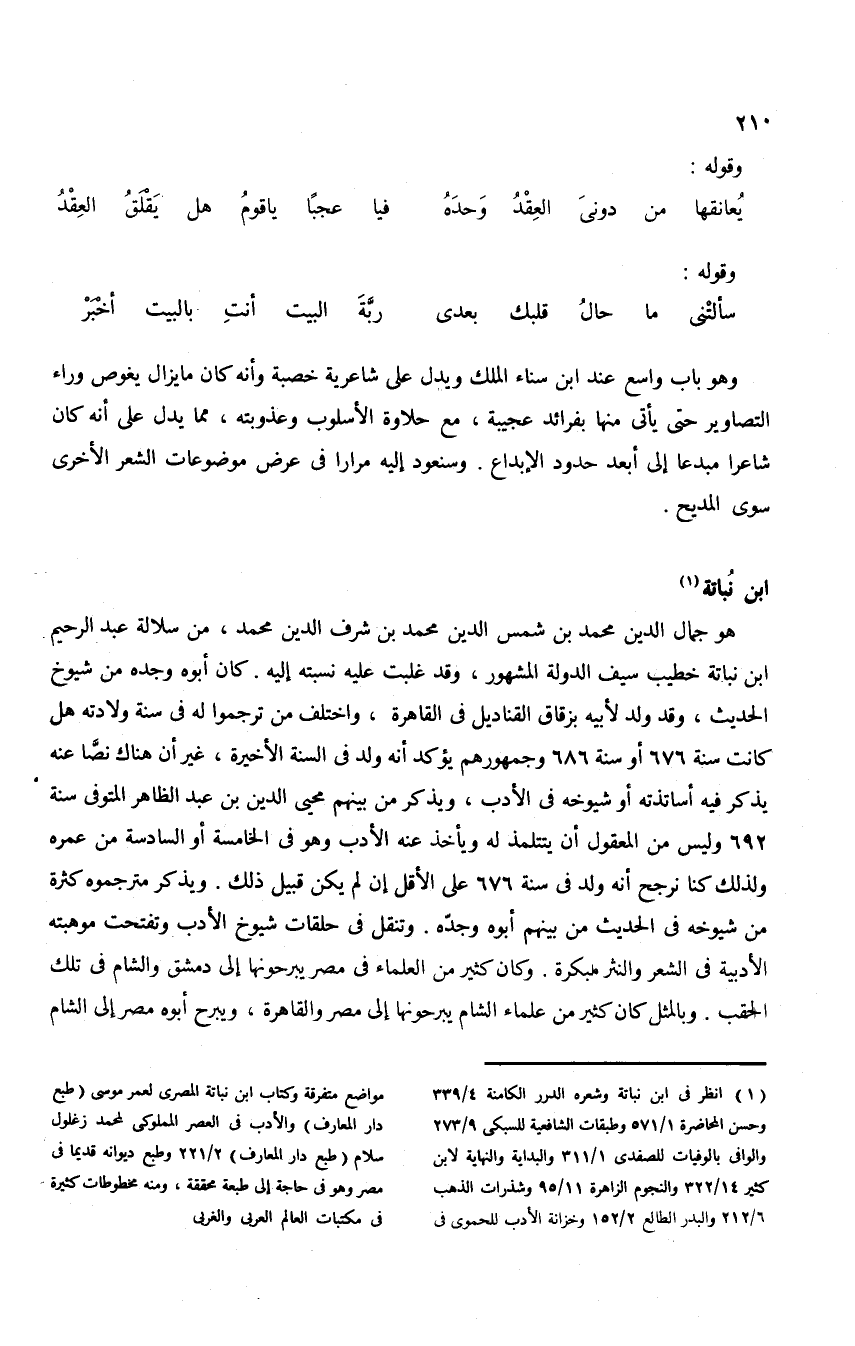 ٢١٠
وقوله :
يُعانقها من دونىَ العِقْدُ وَحدَهُ فيا عجبًا ياقومُ هل يَقْلَقُ العِقْدُ
وقوله :
سألتْنى ما حالُ قلبك بعدى ربَّةَ البيت أنتِ بالبيت أخْبَرْ
وهو باب واسع عند ابن سناء الملك ويدل على شاعرية خصبة وأنه كان مايزال يغوص وراء
التصاوير حتى يأتى منها بفرائد عجيبة ، مع حلاوة الأسلوب وعذوبته ، مما يدل على أنه كان
شاعرا مبدعا إلى أبعد حدود الإبداع . وسنعود إليه مرارا فى عرض موضوعات الشعر الأخرى
سوى المديح .
ابن نُباتة(١)
هو جمال الدين محمد بن شمس الدين محمد بن شرف الدين محمد ، من سلالة عبد الرحيم
ابن نباتة خطيب سيف الدولة المشهور ، وقد غلبت عليه نسبته إليه . كان أبوه وجده من شيوخ
الحديث ، وقد ولد لأبيه بزقاق القناديل فى القاهرة ، واختلف من ترجموا له فى سنة ولادته هل
كانت سنة ٦٧٦ أو سنة ٦٨٦ وجمهورهم يؤكد أنه ولد فى السنة الأخيرة ، غير أن هناك نصًّا عنه
يذكر فيه أساتذته أو شيوخه فى الأدب ، ويذكر من بينهم محيى الدين بن عبد الظاهر المتوفى سنة
٦٩٢ وليس من المعقول أن يتتلمذ له ويأخذ عنه الأدب وهو فى الخامسة أو السادسة من عمره
ولذلك كنا نرجح أنه ولد فى سنة ٦٧٦ على الأقل إن لم يكن قبيل ذلك . ويذكر مترجموه كثرة
من شيوخه فى الحديث من بينهم أبوه وجدّه . وتنقل فى حلقات شيوخ الأدب وتفتحت موهبته
الأدبية فى الشعر والنثر مبكرة . وكان كثير من العلماء فى مصر يبرحونها إلى دمشق والشام فى تلك
الحقب . وبالمثل كان كثير من علماء الشام يبرحونها إلى مصر والقاهرة ، ويبرح أبوه مصر إلى الشام
( ١ ) انظر فى ابن نباتة وشعره الدرر الكامنة ٣٣٩/٤
وحسن المحاضرة ٥٧١/١ وطبقات الشافعية للسبكى ٢٧٣/٩
والوافى بالوفيات للصفدى ٣١١/١ والبداية والنهاية لابن
كثير ٣٢٢/١٤ والنجوم الزاهرة ٩٥/١١ وشذرات الذهب
٢١٢/٦ والبدر الطالع ١٥٢/٢ وخزانة الأدب للحموى فى
مواضع متفرقة وكتاب ابن نباتة المصرى لعمر موسى ( طبع
دار المعارف ) والأدب فى العصر المملوكى لمحمد زغلول
سلام ( طبع دار المعارف ) ٢٢١/٢ وطبع ديوانه قديما فى
مصر وهو فى حاجة إلى طبعة محققة ، ومنه مخطوطات كثيرة
فى مكتبات العالم العربى والغربى